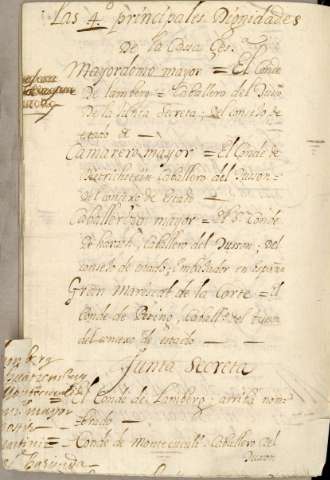 Las 4.º principales Dignidades
de la Casa Ces.ª
Mayordomo mayor = El Conde
de Lamberg = Caballero del Tuson
De la Junta Secreta; del consejo de
estado &c —
Camarero mayor = El Conde de
Caballero del Tuson =
del consexo de estado —
Caballerizo mayor = El S.r Conde
de Harach, Caballero del Tusson; Del
consejo de estado; Embaxador en españa
Gran mariscal de la Corte = El
Conde de Caball.º del Tuson
del consexo de estado —
Junta Secreta
= El Conde de Lamberg; arriba nom-
brado —
= Conde de Montecuculi, Caballero del
Tusson
mayor